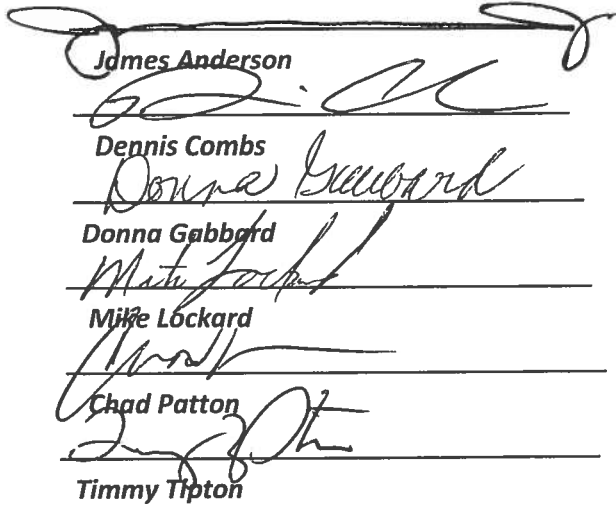 James Anderson
Dennis Combs
Donna Gabbard
Donna Gabbard
Mike Lockard
Mike Lockard
Chad Patton
Timmy Tipton